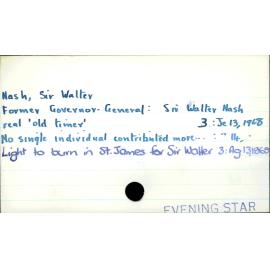 Nash, Sir Walter
Former Governor-General: Sir Walter Nash
real 'old timer' 3: Je 13, 1968
No single individual contributed more... : "
Light to burn in St. James for Sir Walter 3: Ag 13, 1968
EVENING STAR